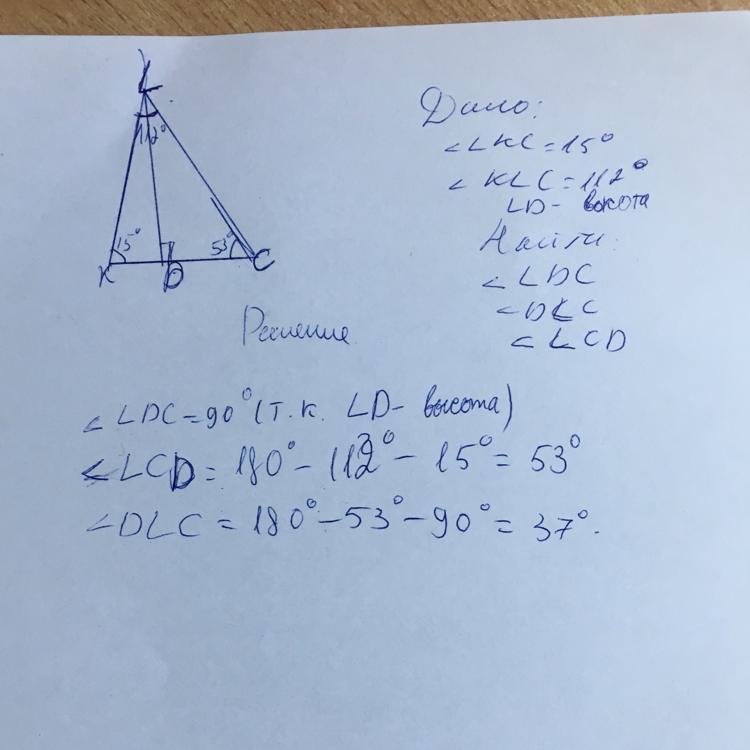 L
112°
15°
53°
K
D
C
Дано:
∠LKC=15°
∠KLC=112°
LD- высота
Найти:
∠LDC
∠DLC
∠LCD
Решение
∠LDC=90° (т.к. LD- высота)
∠LCD=180°-112°-15°=53°
∠DLC=180°-53°-90°=37°.